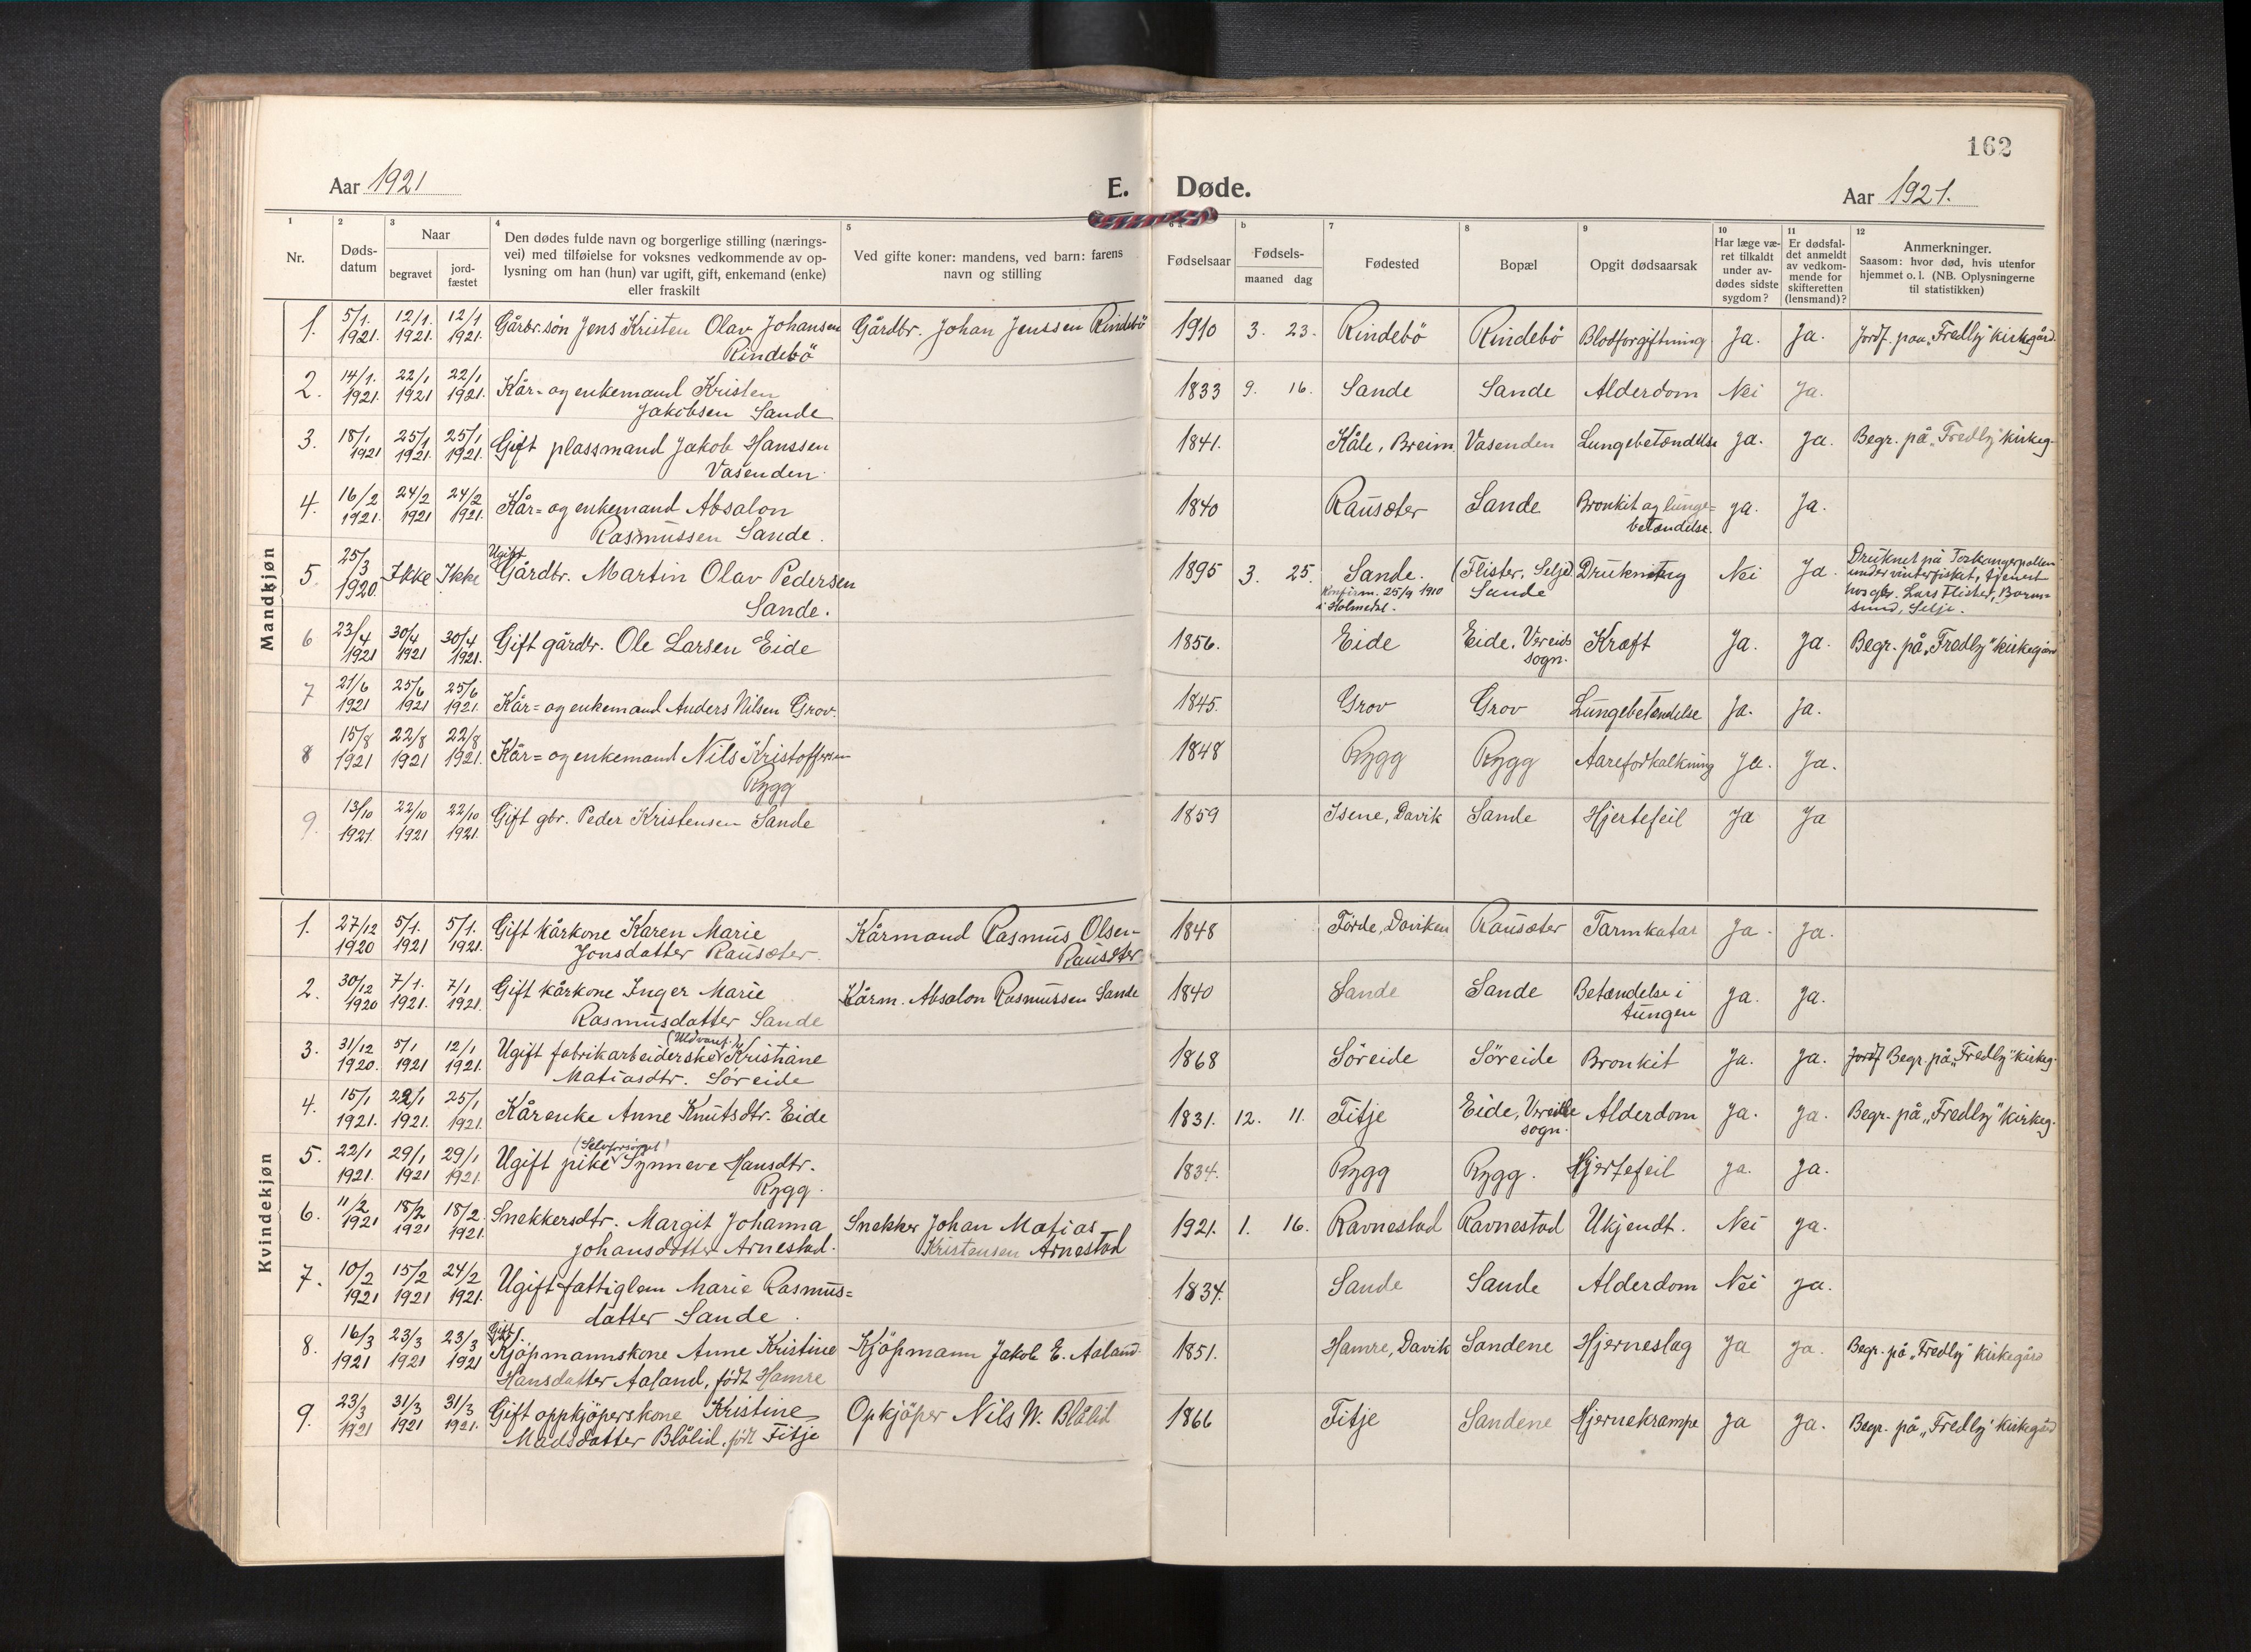 162
Aar 1921
E. Døde.
Aar 1921.
1 2 3 4 5 6 a b 7 8 9 10 11 12
Nr.
Døds-
datum
Naar
begravet
jord-
fæstet
Den dødes fulde navn og borgerlige stilling (nærings-
vei) med tilføielse for voksnes vedkommende av op-
lysning om han (hun) var ugift, gift, enkemand (enke)
eller fraskilt
Ved gifte koner: mandens, ved barn: farens
navn og stilling
Fødselsaar
Fødsels-
maaned dag
Fødested
Bopæl
Opgit dødsaarsak
Har læge væ-
ret tilkaldt
under av-
dødes sidste
sygdom?
Er dødsfal-
det anmeldt
av vedkom-
mende for
skifteretten
(lensmand)?
Anmerkninger.
Saasom: hvor død, hvis utenfor
hjemmet o. l. (NB. Oplysningerne
til statistikken)
Mandkjøn
1. 5/1. 1921. 12/1. 1921. 12/1 1921. Gårbr.søn Jens Kristen Olav Johansen Gårdbr. Johan Jenssen Rindebö 1910 3. 23. Rindebö Rindebö Blodforgiftning Ja. Ja. Jordf. paa „Fredly" kirkegård.
Rindebö
2. 14/1. 1921. 22/1 1921 22/1 1921. Kår- og enkemand Kristen 1833 9. 16. Sande Sande Alderdom Nei Ja.
Jakobsen Sande
3. 18/1 1921 25/1 1921. 25/1 1921. Gift plassmand Jakob Hanssen 1841. Kåle, Breim. Vasenden Lungebetændelse Ja. Ja. Begr. på „Fredly" kirkeg.
Vasenden
4. 16/2 1921. 24/2 1921 24/2 1921. Kår= og enkemand Absalon 1840 Rausæter Sande Bronkit og lunge= Ja. Ja.
Rasmussen Sande. betændelse.
5. 25/3 1920. Ikke Ikke Ugift Gårdbr. Martin Olav Pedersen 1895 3. 25. Sande. (Flister, Selje) Drukning Nei Ja. Druknet på
Sande. Konfirm. 25/9 1910 Sande under vinterfisket, tjenest
i Holmedal. hos gbr. Lars Flister,
Selje.
6 23/4 1921 30/4 1921 30/4 1921. Gift gårdbr. Ole Larsen Eide 1856. Eide Eide, Vereids Kræft Ja. Ja. Begr. på „Fredly" kirkegård
sogn.
7 21/6 1921 25/6 1921 25/6 1921. Kår= og enkemand Anders Nilsen Grov. 1845. Grov Grov Lungebetændelse Ja. Ja.
8 15/8 1921 22/8 1921 22/8 1921. Kår= og enkemand Nils Kristoffersen 1848 Rygg Rygg Aareforkalkning Ja. Ja.
Rygg
9. 13/10 1921. 22/10 1921 22/10 1921. Gift gbr. Peder Kristensen Sande 1859 Isene, Davik Sande Hjertefeil Ja Ja
Kvindekjøn
1. 27/12 1920 5/1. 1921 5/1. 1921. Gift kårkone Karen Marie Kårmand Rasmus Olsen 1848 Förde, Daviken Rausæter Tarmkatar Ja. Ja.
Jonsdatter Rausæter. Rausæter
2. 30/12 1920 7/1. 1921. 7/1 1921. Gift kårkone Inger Marie Kårm. Absalon Rasmussen Sande 1840 Sande Sande Betændelse i Ja. Ja.
Rasmusdatter Sande tungen
3. 31/12 1920. 5/1 1921 12/1 1921. Ugift fabrikarbeiderske Kristiane 1868 Söreide Söreide Bronkit Ja. Ja. Jordf Begr. på „Fredly" kirkeg.
Matiasdtr. Söreide
4. 15/1 1921. 22/1 1921. 25/1 1921. Kårenke Anne Knutsdtr. Eide 1831. 12. 11. Fitje Eide, Vereide Alderdom Ja. Ja. Begr. på „Fredly" kirkeg.
sogn.
5. 22/1 1921. 29/1 1921 29/1 1921. Ugift pike (Selvforsörget) Synneve Hansdtr. 1834. Rygg Rygg. Hjertefeil Ja. Ja.
Rygg.
6. 11/2 1921 18/2 1921 18/2. 1921. Snekkersdtr. Margit Johanna Snekker Johan Matias 1921. 1. 16. Ravnestad Ravnestad Ukjendt. Nei Ja.
Johansdatter Arnestad. Kristensen Arnestad
7. 10/2 1921 15/2 1921 24/2 1921. Ugift fattiglem Marie Rasmus= 1834. Sande Sande Alderdom Nei Ja.
datter Sande.
8. 16/3 1921 23/3 1921 23/3 1921 Gift Kjöpmannskone Anne Kristine Kjöpmann Jakob E. Aaland 1851. Hamre, Davik Sandene Hjerneslag Ja Ja. Begr. på „Fredly" kirkegård
Hansdatter Aaland, födt Hamre
9. 23/3 1921 31/3 1921 31/3 1921. Gift oppkjöperskone Kristine Opkjöper Nils W. Blålid 1866 Fitje Sandene Hjernekrampe Ja Ja. Begr. på „Fredly" kirkegård
Madsdatter Blålid, födt Fitje